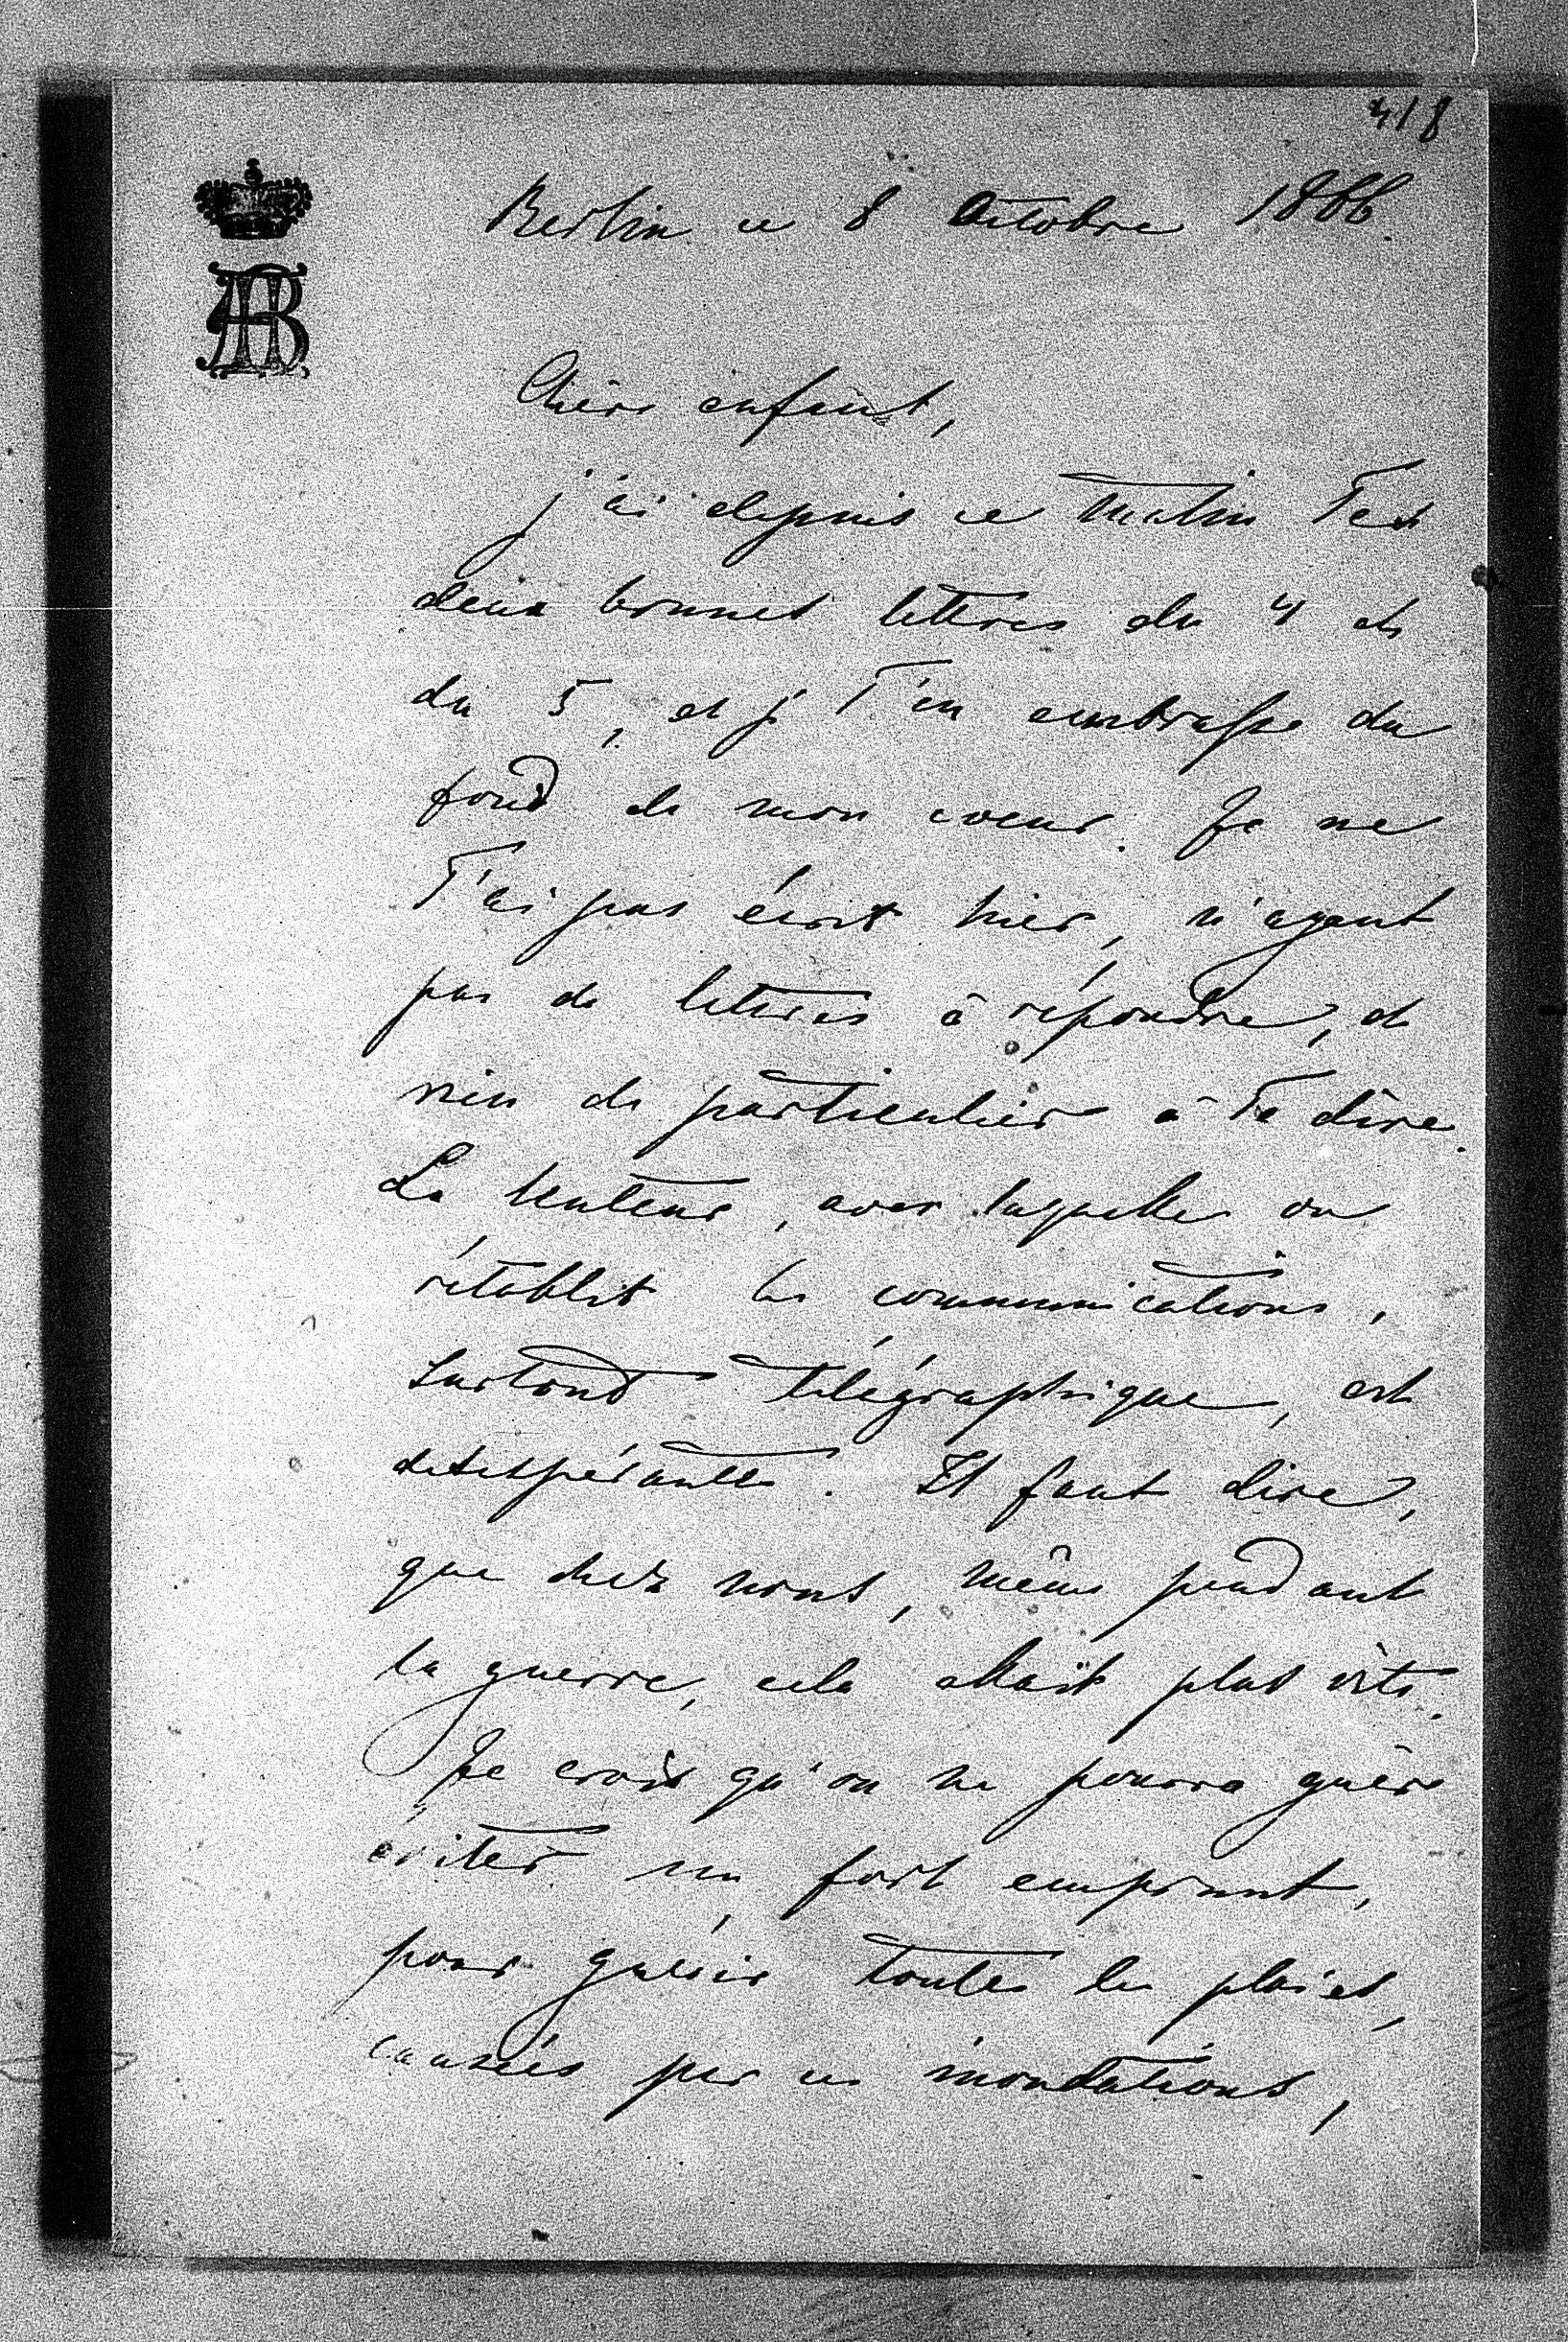 418
AB
Berlin ce 8 Octobre 1866.
Chère enfant,
j'ai depuis ce matin Tes
deux bonnes lettres du 4 et
du 5, et je T'en embrasse du
fond de mon coeur. Je ne
T'ai pas écrit hier, n'ayant
pas de lettres à répondre, et
rien de particulier à Te dire.
La lenteur, avec laquelle on
rétablit les communications,
surtout télégraphique, est
desespérante. Il faut dire,
que chez nous, même pendant
la guerre, cela allait plus vite.
Je crois qu'on ne pourra guère
eviter un fort emprunt,
pour guérir toutes les plaies,
causées par ces inondations,